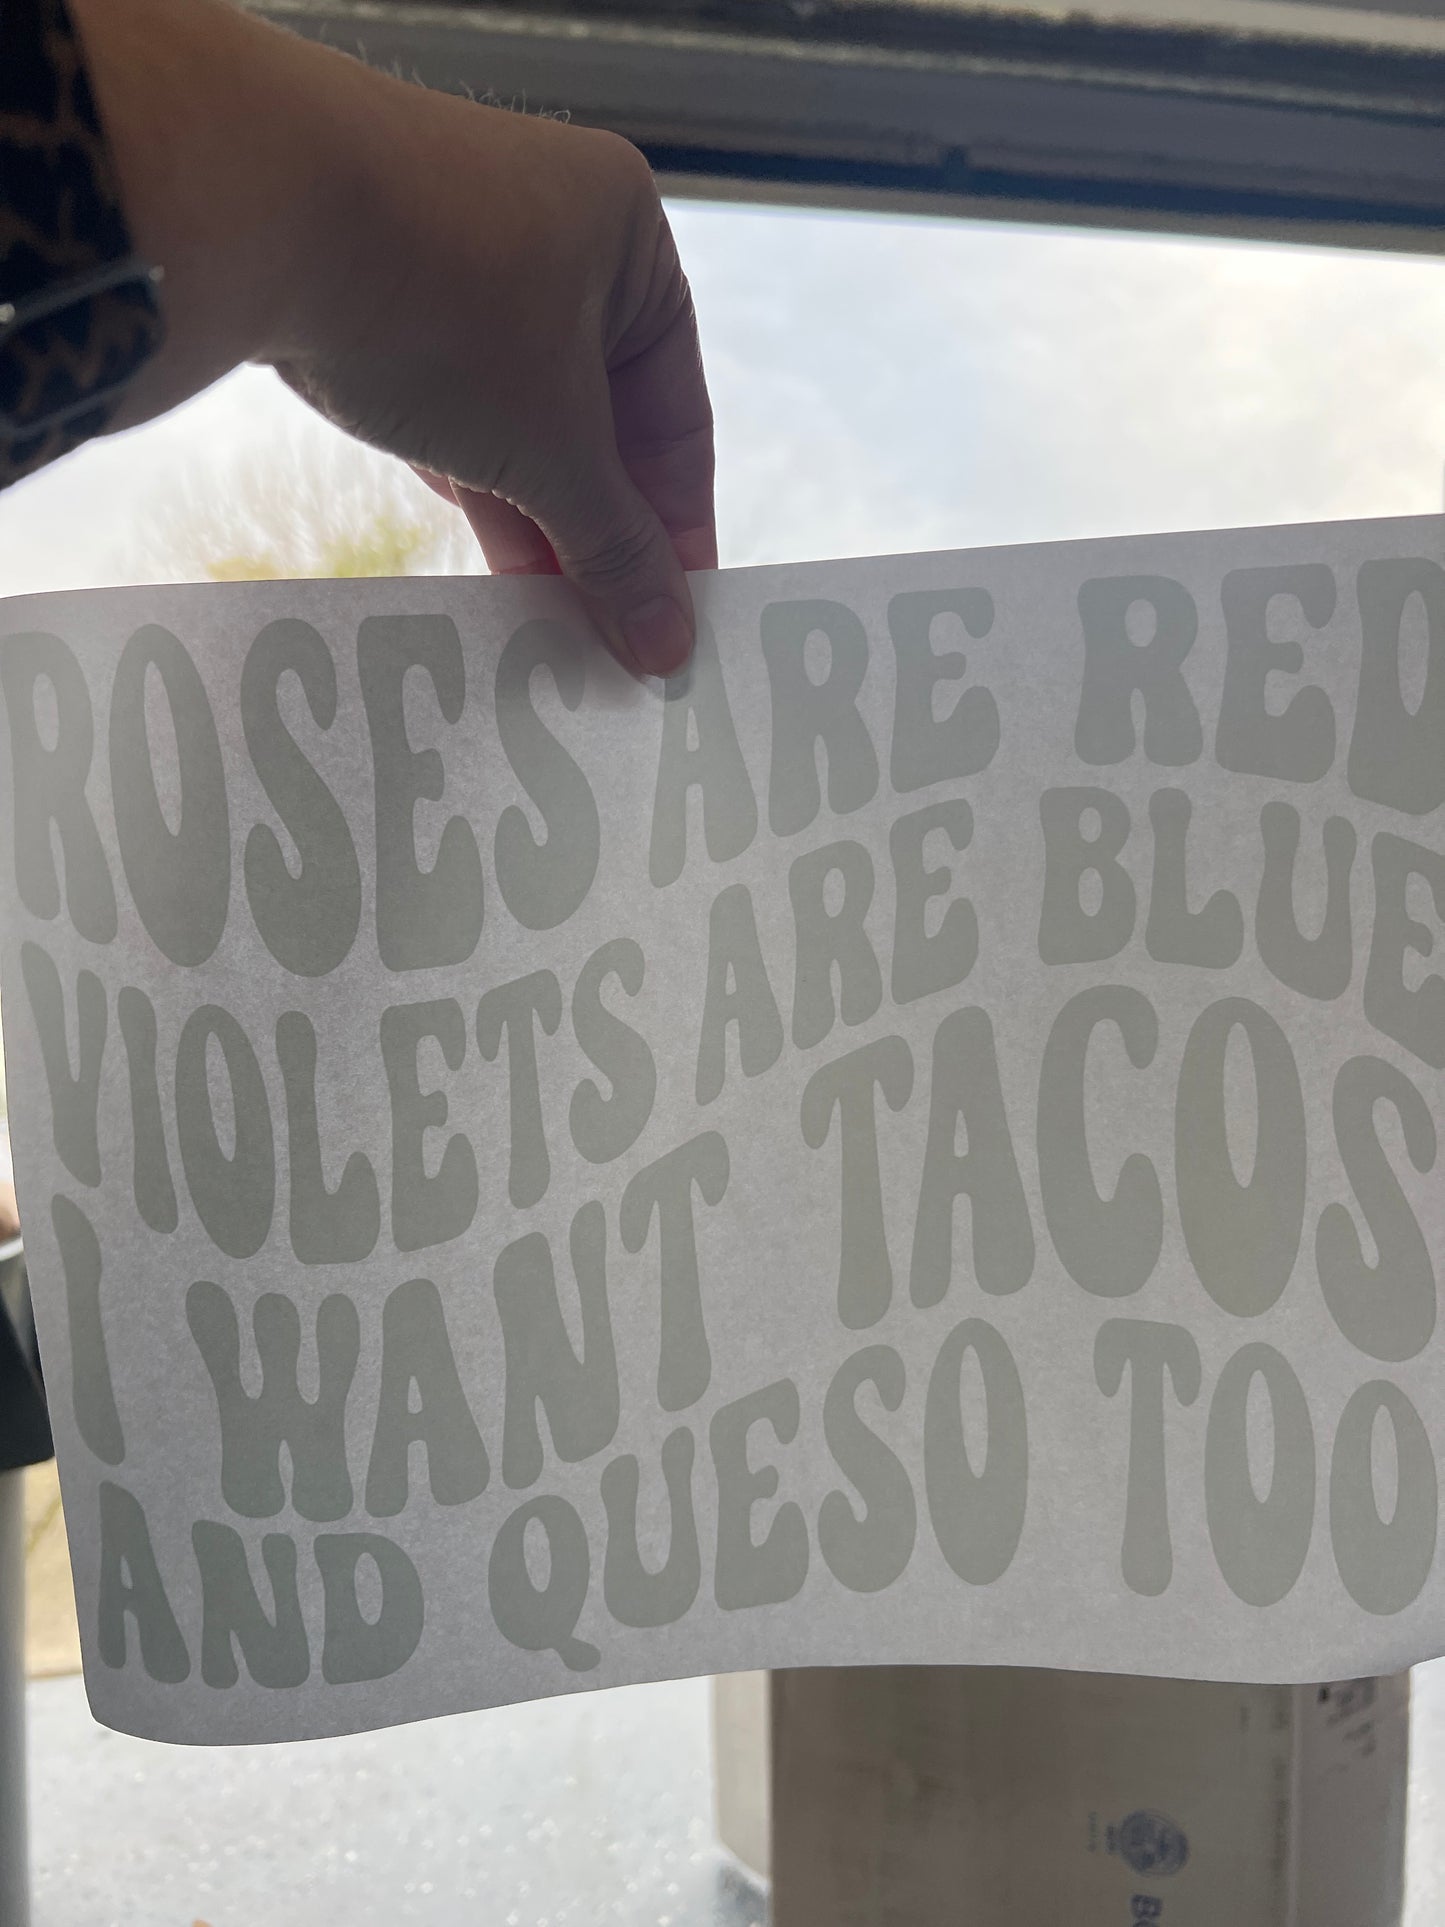 ROSES ARE RED
VIOLETS ARE BLUE
I WANT TACOS
AND QUESO TOO